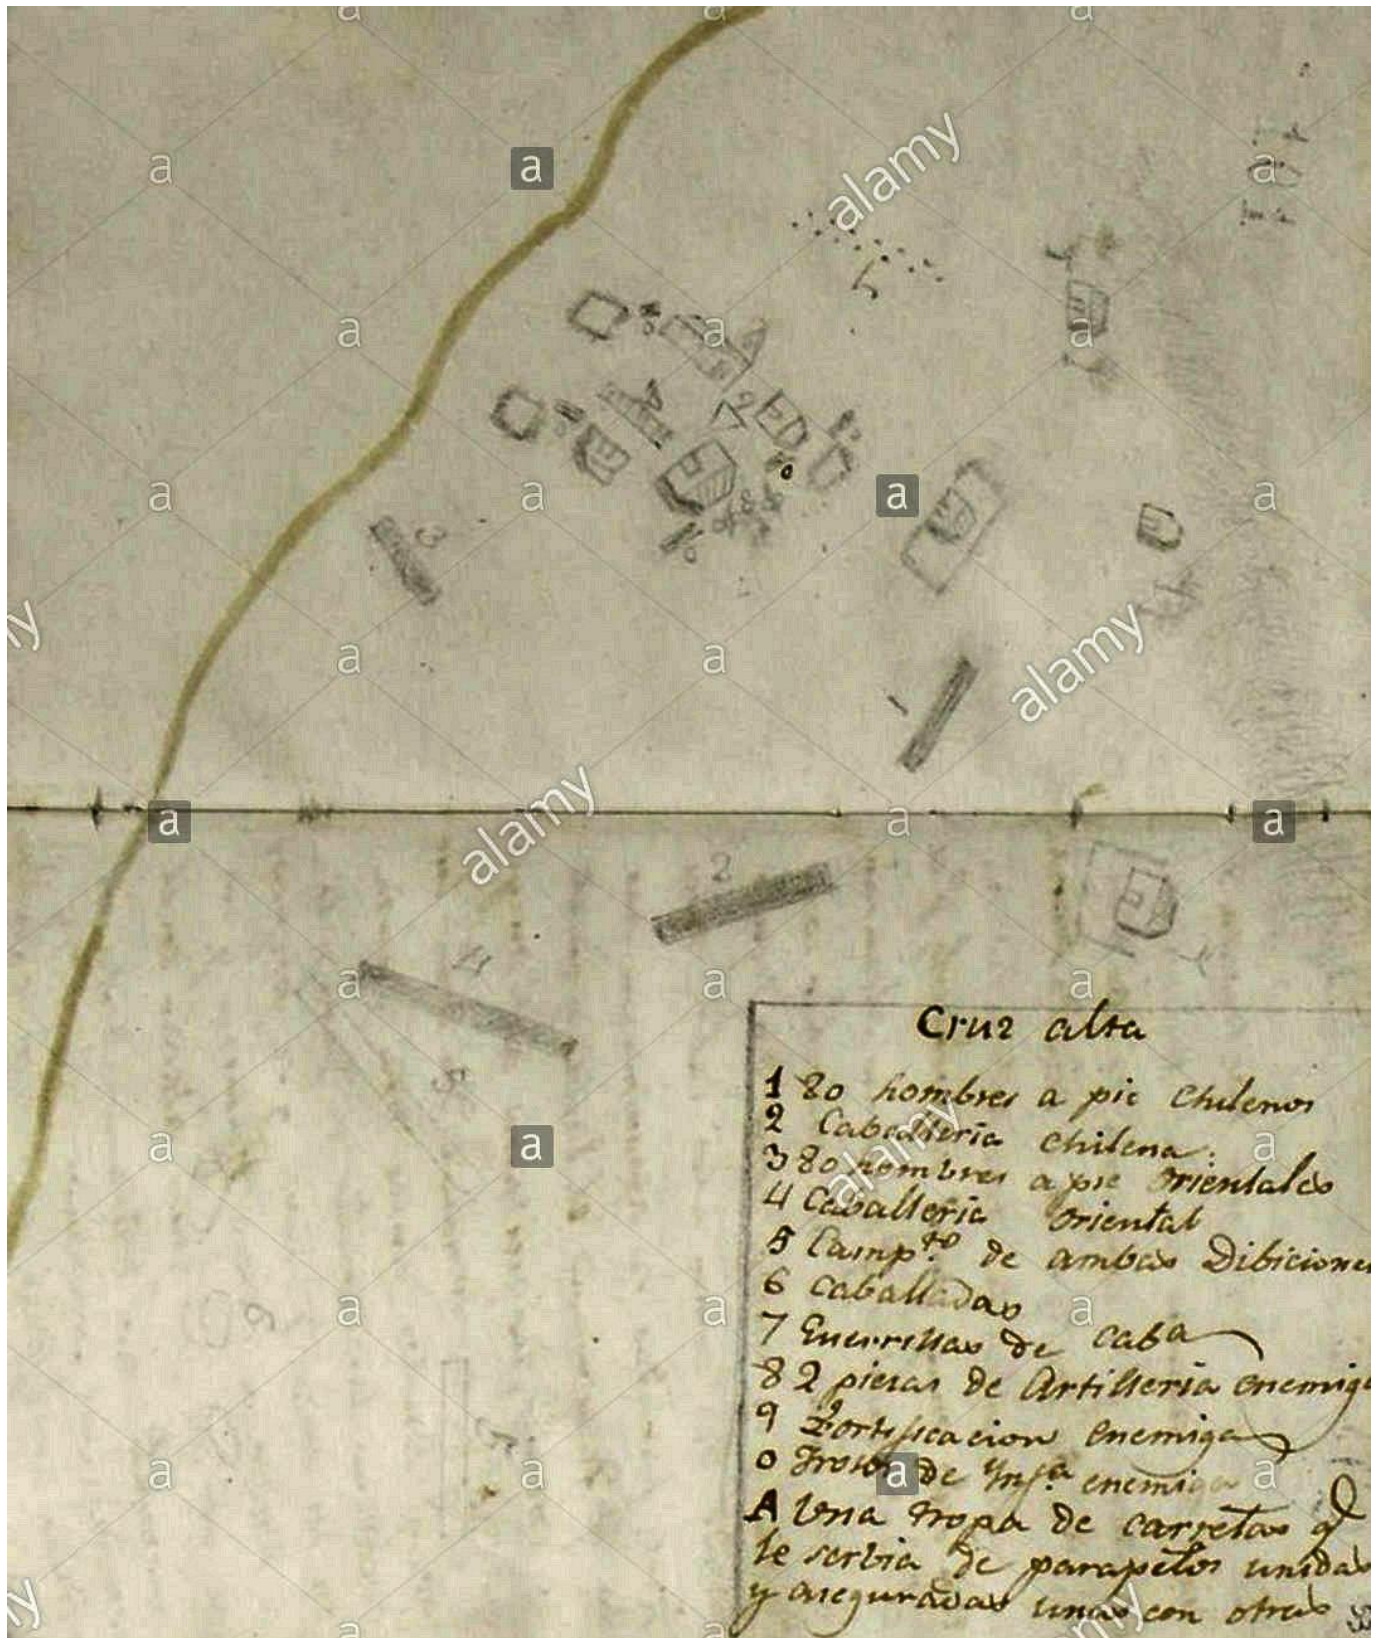 7
A
9
0
8
3
1
2
4
5
6
Cruz alta
1 80 hombres a pie chilenos
2 Caballeria chilena.
3 80 hombres a pie orientales
4 Caballeria oriental
5 Camp.to de ambas Dibiciones
6 caballadas
7 Guerrillas de caba
8 2 piesas de Artilleria enemiga
9 Fortificacion enemiga
0 de Ynf.a enemiga
A Una tropa de carretas q
le serbia de parapetos unidas
y aseguradas unas con otras
alamy
alamy
alamy
alamy
alamy